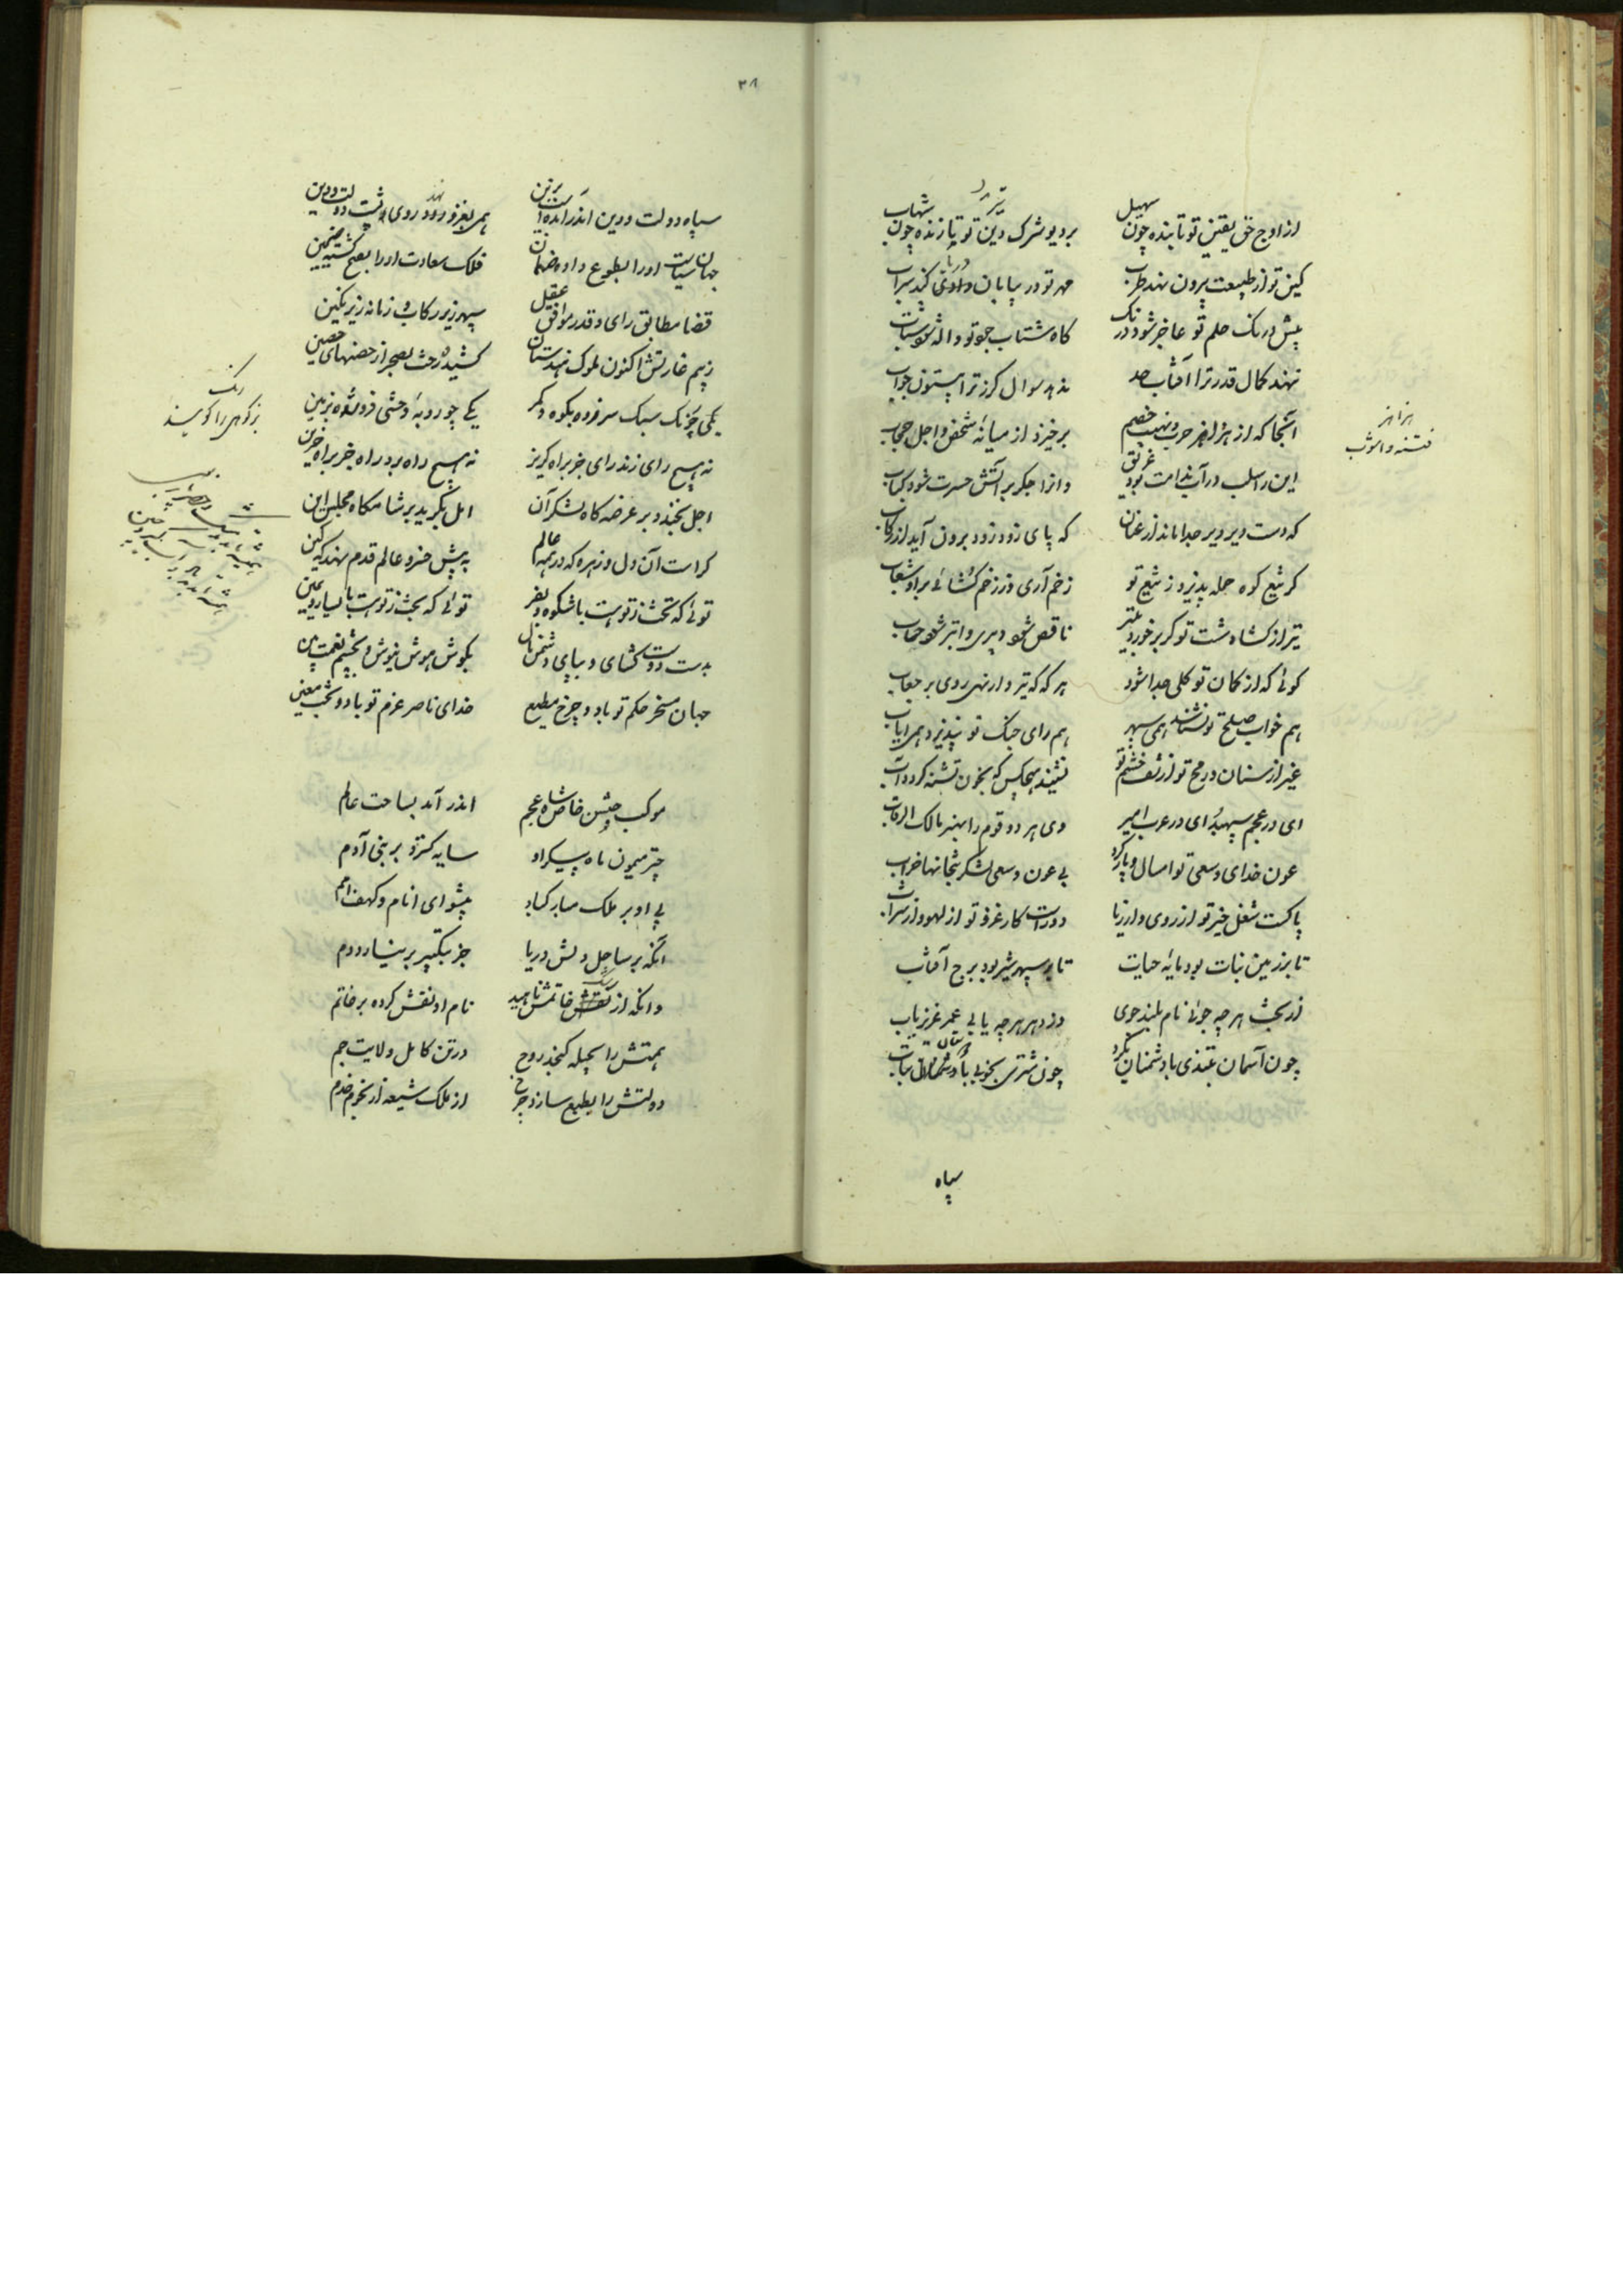 از اوج حق یقین تو تابنده چون سهیل
بر دیو شرک دین تو یازنده چون شهاب
کین تو از طبیعت بیرون نهد طرب
مهر تو در بیابان
پیش درنک حلم تو عاجز شود درنک
کاه شتاب جود تو واله شود شتاب
ننهد کمال قدر ترا آفتاب حد
ندهد سوال کرز ترا بیستون جواب
آنجا که از هزاهز حرب و نهیب خصم
برخیزد از میانهٔ شخص و اجل حجاب
این را سلب در آب ندامت بود غریق
وانرا جکر بر آتش حسرت شود کباب
که دست دیر دیر جدا ماند از عنان
که پای زود زود برون آید از رکاب
کر تیغ کوه حمله پذیرد ز تیغ تو
زخم آری و ز زخم کشائی بر او شعاب
تیر از کشاد شست تو کر بر خورد بتیر
ناقص شود دبیری و ابتر شود حساب
کوئی که از کمان تو کلی جدا شود
هر که که تیروار نهی روی بر
هم خواب صلح تو نشناسد همی سپهر
هم رای جنک تو نپذیرد همی ایاب
غیر از سنان رمح تو از تف خشم تو
نشنید هیچکس که بخون تشنه کردد آب
ای در عجم سپهبد ای در عرب امیر
وی هر دو قوم را بهنر مالک الرقاب
عون خدای و سعی تو امسال و پار کرد
بی عون و سعی لشکر بتخانها خراب
پاکست شغل خیر تو از روی و از ریا
دورست کار غزو تو از لهو و از شراب
تا بر زمین نبات بود مایهٔ حیات
تا بر سپهر شیر بود برج آفتاب
از بخت هر چه جوئی نام بلند جوی
وز دهر هر چه یابی عمر عزیز یاب
چون آسمان بتندی با دشمنان بگرد
چون مشتری بخوبی بر دوستان بتاب
سپاه
هزاهز
فتنه و آشوب
۳۸
سپاه دولت و دین اندر آمد
همی بغزو نهد روی پشت دولت و دین
جهان سیاست او را بطوع داده ضمان
فلک سعادت او را بصبح کشته ضمین
قضا مطابق رای و قدر موافق عقل
سپهر زیر رکاب و زمانه زیر نکین
ز بیم غارتش اکنون ملوک هندستان
کشیده رخت بصحرا ز حصنهای حصین
یکی چو رنک سبک سر فزوده بکوه و کمر
یکی چو روبه وحشی فرو شده بزمین
نه هیچ رای زند رای جز براه کریز
نه هیچ راه برد راه جز براه حزین
اجل بخندد بر عرضه کاه لشکر آن
امل بکرید بر شامکاه مجلس این
کراست آن دل و زهره که در همه عالم
به پیش خسرو عالم قدم نهد بکین
توئی که تخت ز تو هست با شکوه و بفر
توئی که بخت ز تو هست با یسار و یمین
بدست دوست کشای و بپای دشمن مال
بکوش هوش نیوش و بچشم نعمت بین
جهان مسخر حکم تو باد و چرخ مطیع
خدای ناصر عزم تو باد و بخت معین
موکب جشن خاص شاه عجم
اندر آمد بساحت عالم
چتر میمون ماه پیکر او
سایه کسترد بر بنی آدم
پی او بر ملک مبارکباد
پیشوای انام و کهف امم
آنکه بر ساحل دلش دریا
جز بتکبیر بر نیارد دم
وانکه از رشک خاتمش ناهید
نام او نقش کرده بر خاتم
همتش را بحیله کنجد روح
در تن کامل ولایت جم
دولتش را بطبع سازد چرخ
از ملک شیعه از نجوم خدم
رنک
بز کوهی را کویند